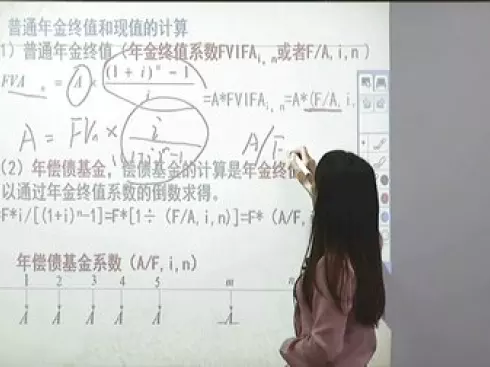 普通年金终值和现值的计算
1) 普通年金终值（年金终值系数FVIFAi, n或者F/A, i, n ）
FVA n = A × (1 + i)^n − 1 / i =A*FVIFAi, n=A*(F/A, i,
A = FVn × i / (1+i)^n −1 A/F
(2) 年偿债基金，偿债基金的计算是年金终值
以通过年金终值系数的倒数求得。
=F*i/[(1+i)ⁿ-1]=F*[1÷ (F/A, i, n)]=F* (A/F,
年偿债基金系数（A/F, i, n）
1 2 3 4 5 m n
A A A A A A